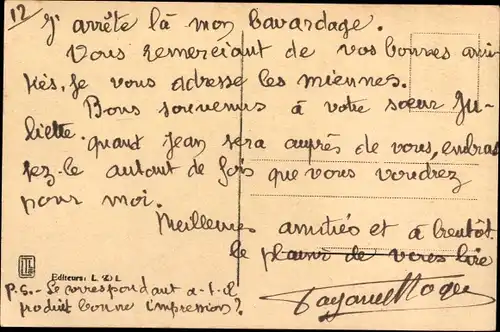 12
J'arrête là mon bavardage.
Vous remerciant de vos bonnes ami-
tiés, je vous adresse les miennes.
Bons souvenirs à votre sœur Ju-
liette. quant Jean sera auprès de vous, embras
sez-le autant de fois que vous voudrez
pour moi.
Meilleures amitiés et à bientôt
le plaisir de vous lire
Editeurs: L.
P.S.- Le correspondant a-t-il
produit bonne impression?
Roger